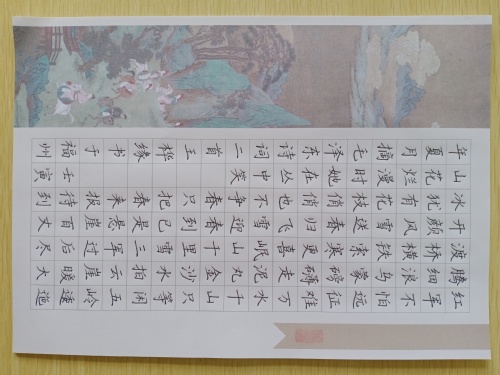 红军不怕远征难万水千山只等闲五岭逶迤
腾细浪乌蒙磅礴走泥丸金沙水拍云崖暖大
渡桥横铁索寒更喜岷山千里雪三军过后尽
开颜风雪送春归飞雪迎春到已是悬崖百丈
冰犹有花枝俏俏也不争春只把春来报待到
山花烂漫时她在丛中笑 壬寅
年夏月摘毛泽东诗词二首王梓缘书于福州